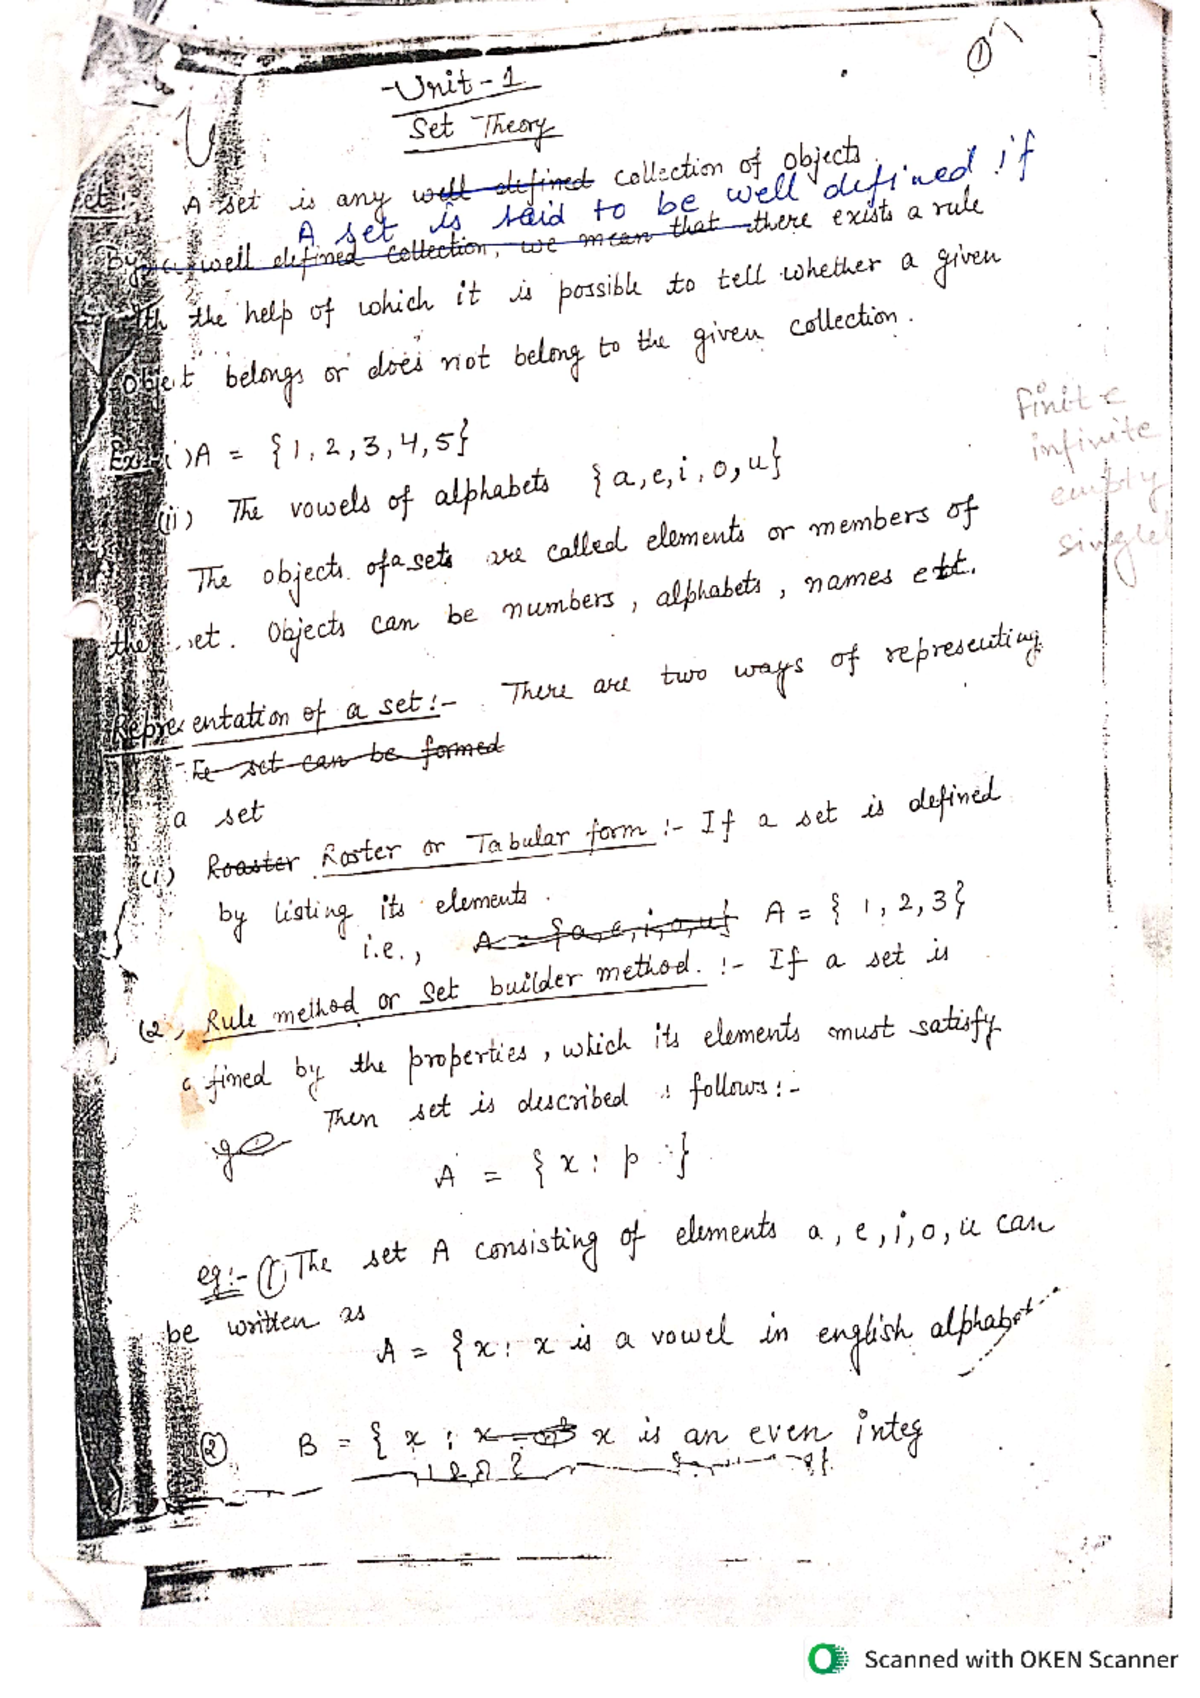 ①
Unit-1
Set Theory
et:- A set is any well defined collection of objects.
A set is said to be well defined if
By a well defined collection, we mean that there exists a rule
ith the help of which it is possible to tell whether a given
object belongs or does not belong to the given collection.
Ex:- (i) A = {1, 2, 3, 4, 5}
(ii) The vowels of alphabets {a, e, i, o, u}
Finite
infinite
empty
single
The objects of a sets are called elements or members of
the set. Objects can be numbers, alphabets, names ett.
Representation of a set:- There are two ways of representing
set can be formed
a set
(1) Roaster Roster or Tabular form :- If a set is defined
by listing its elements.
i.e., A = {a, e, i, o, u} A = {1, 2, 3}
(2) Rule method or Set builder method. :- If a set is
fined by the properties, which its elements must satisfy
Then set is described follows:-
A = {x : p }
eg:- (1) The set A consisting of elements a, e, i, o, u can
be written as
A = {x : x is a vowel in english alphabet
(2) B = {x : x x is an even integ
Scanned with OKEN Scanner